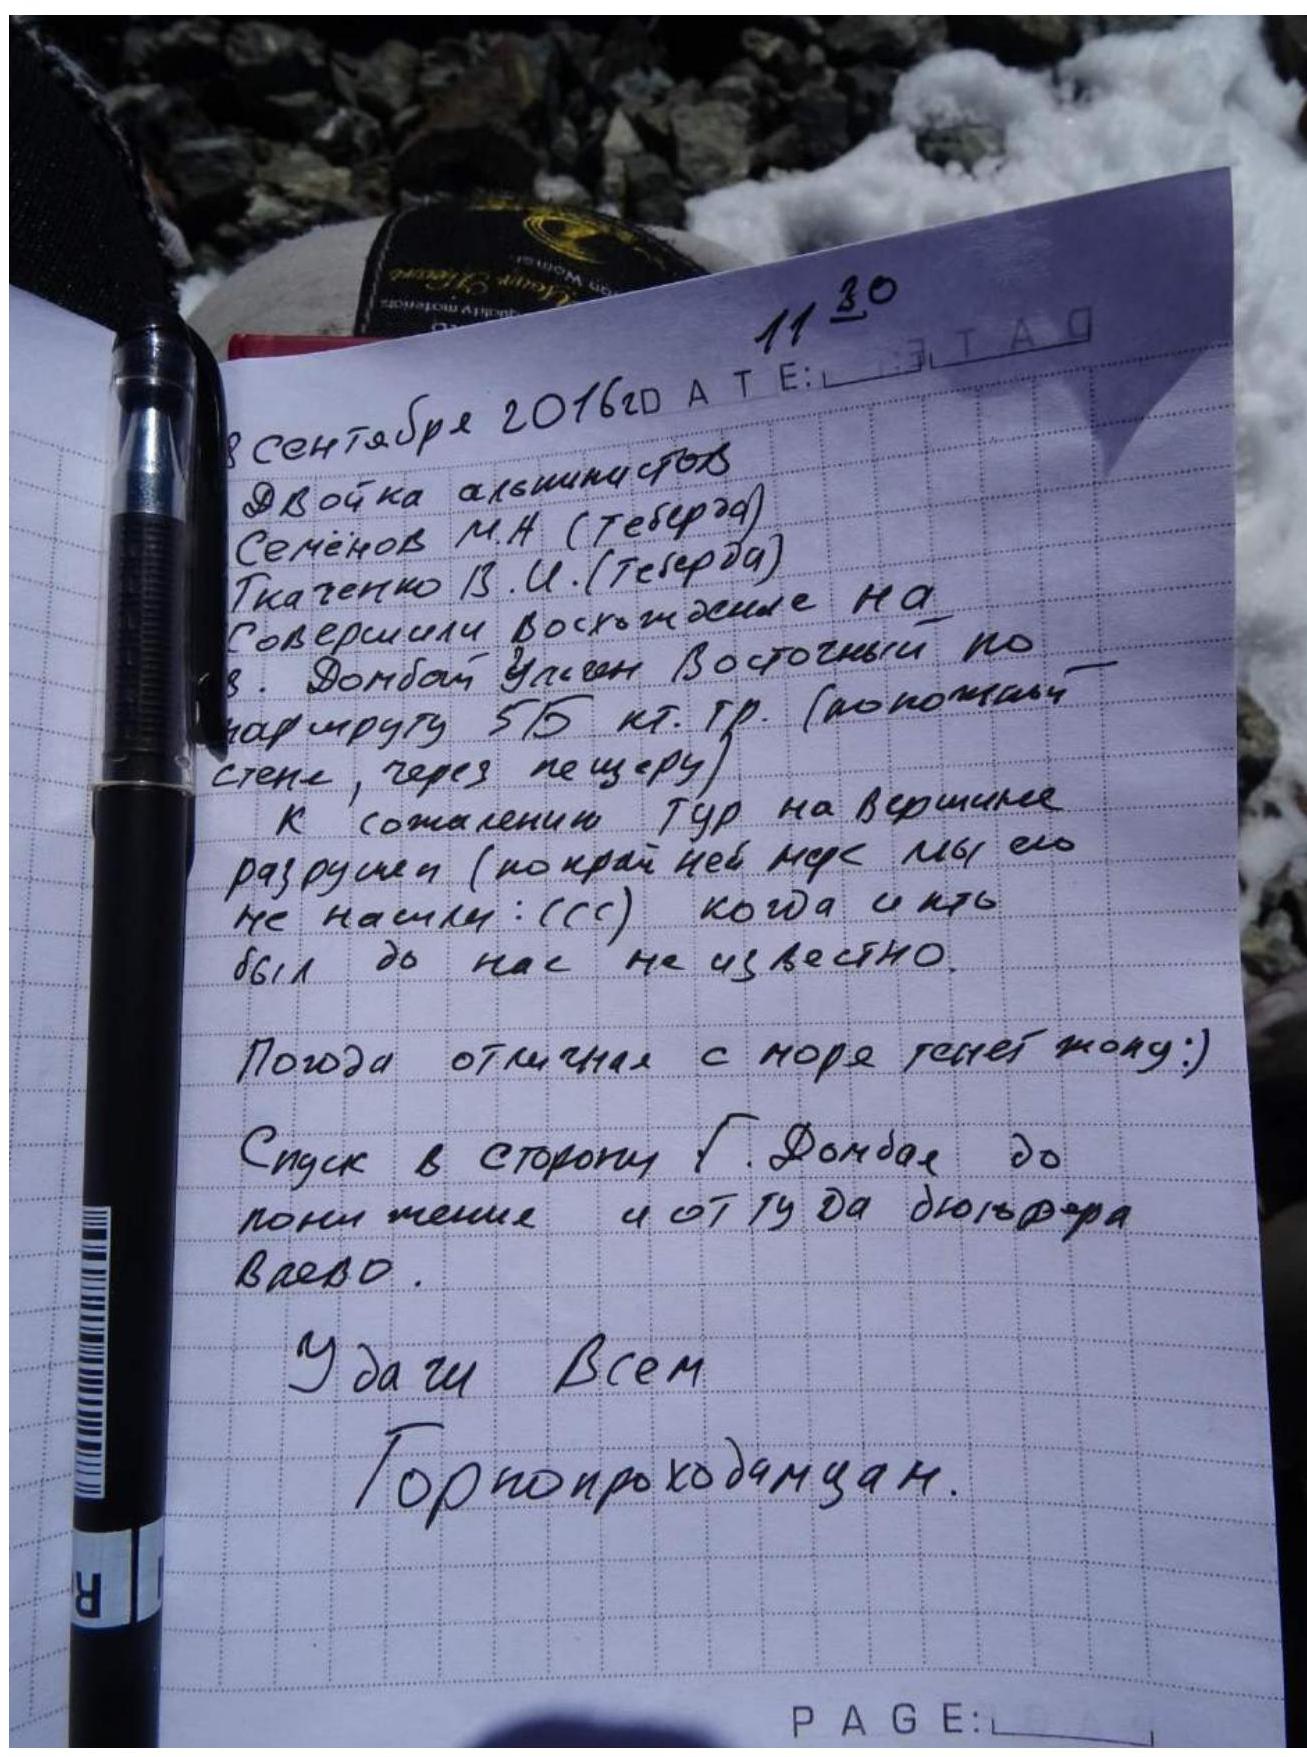 11 30
DATE:
8 Сентября 2016г
Двойка альпинистов
Семёнов М.А (Теберда)
Ткаченко В.И. (Теберда)
Совершили Восхождение на
в. Домбай Ульген Восточный по
маршруту 5Б кт. тр.
стене, через пещеру)
К сожалению Тур на вершине
разрушен (по крайней мере мы его
не нашли :((() когда и кто
был до нас не известно.
Погода отличная с моря тянет жопу:)
Спуск в сторону Г. Домбая до
понижения и оттуда бюльфера
влево.
Удачи Всем
Горнопроходимцам.
PAGE: